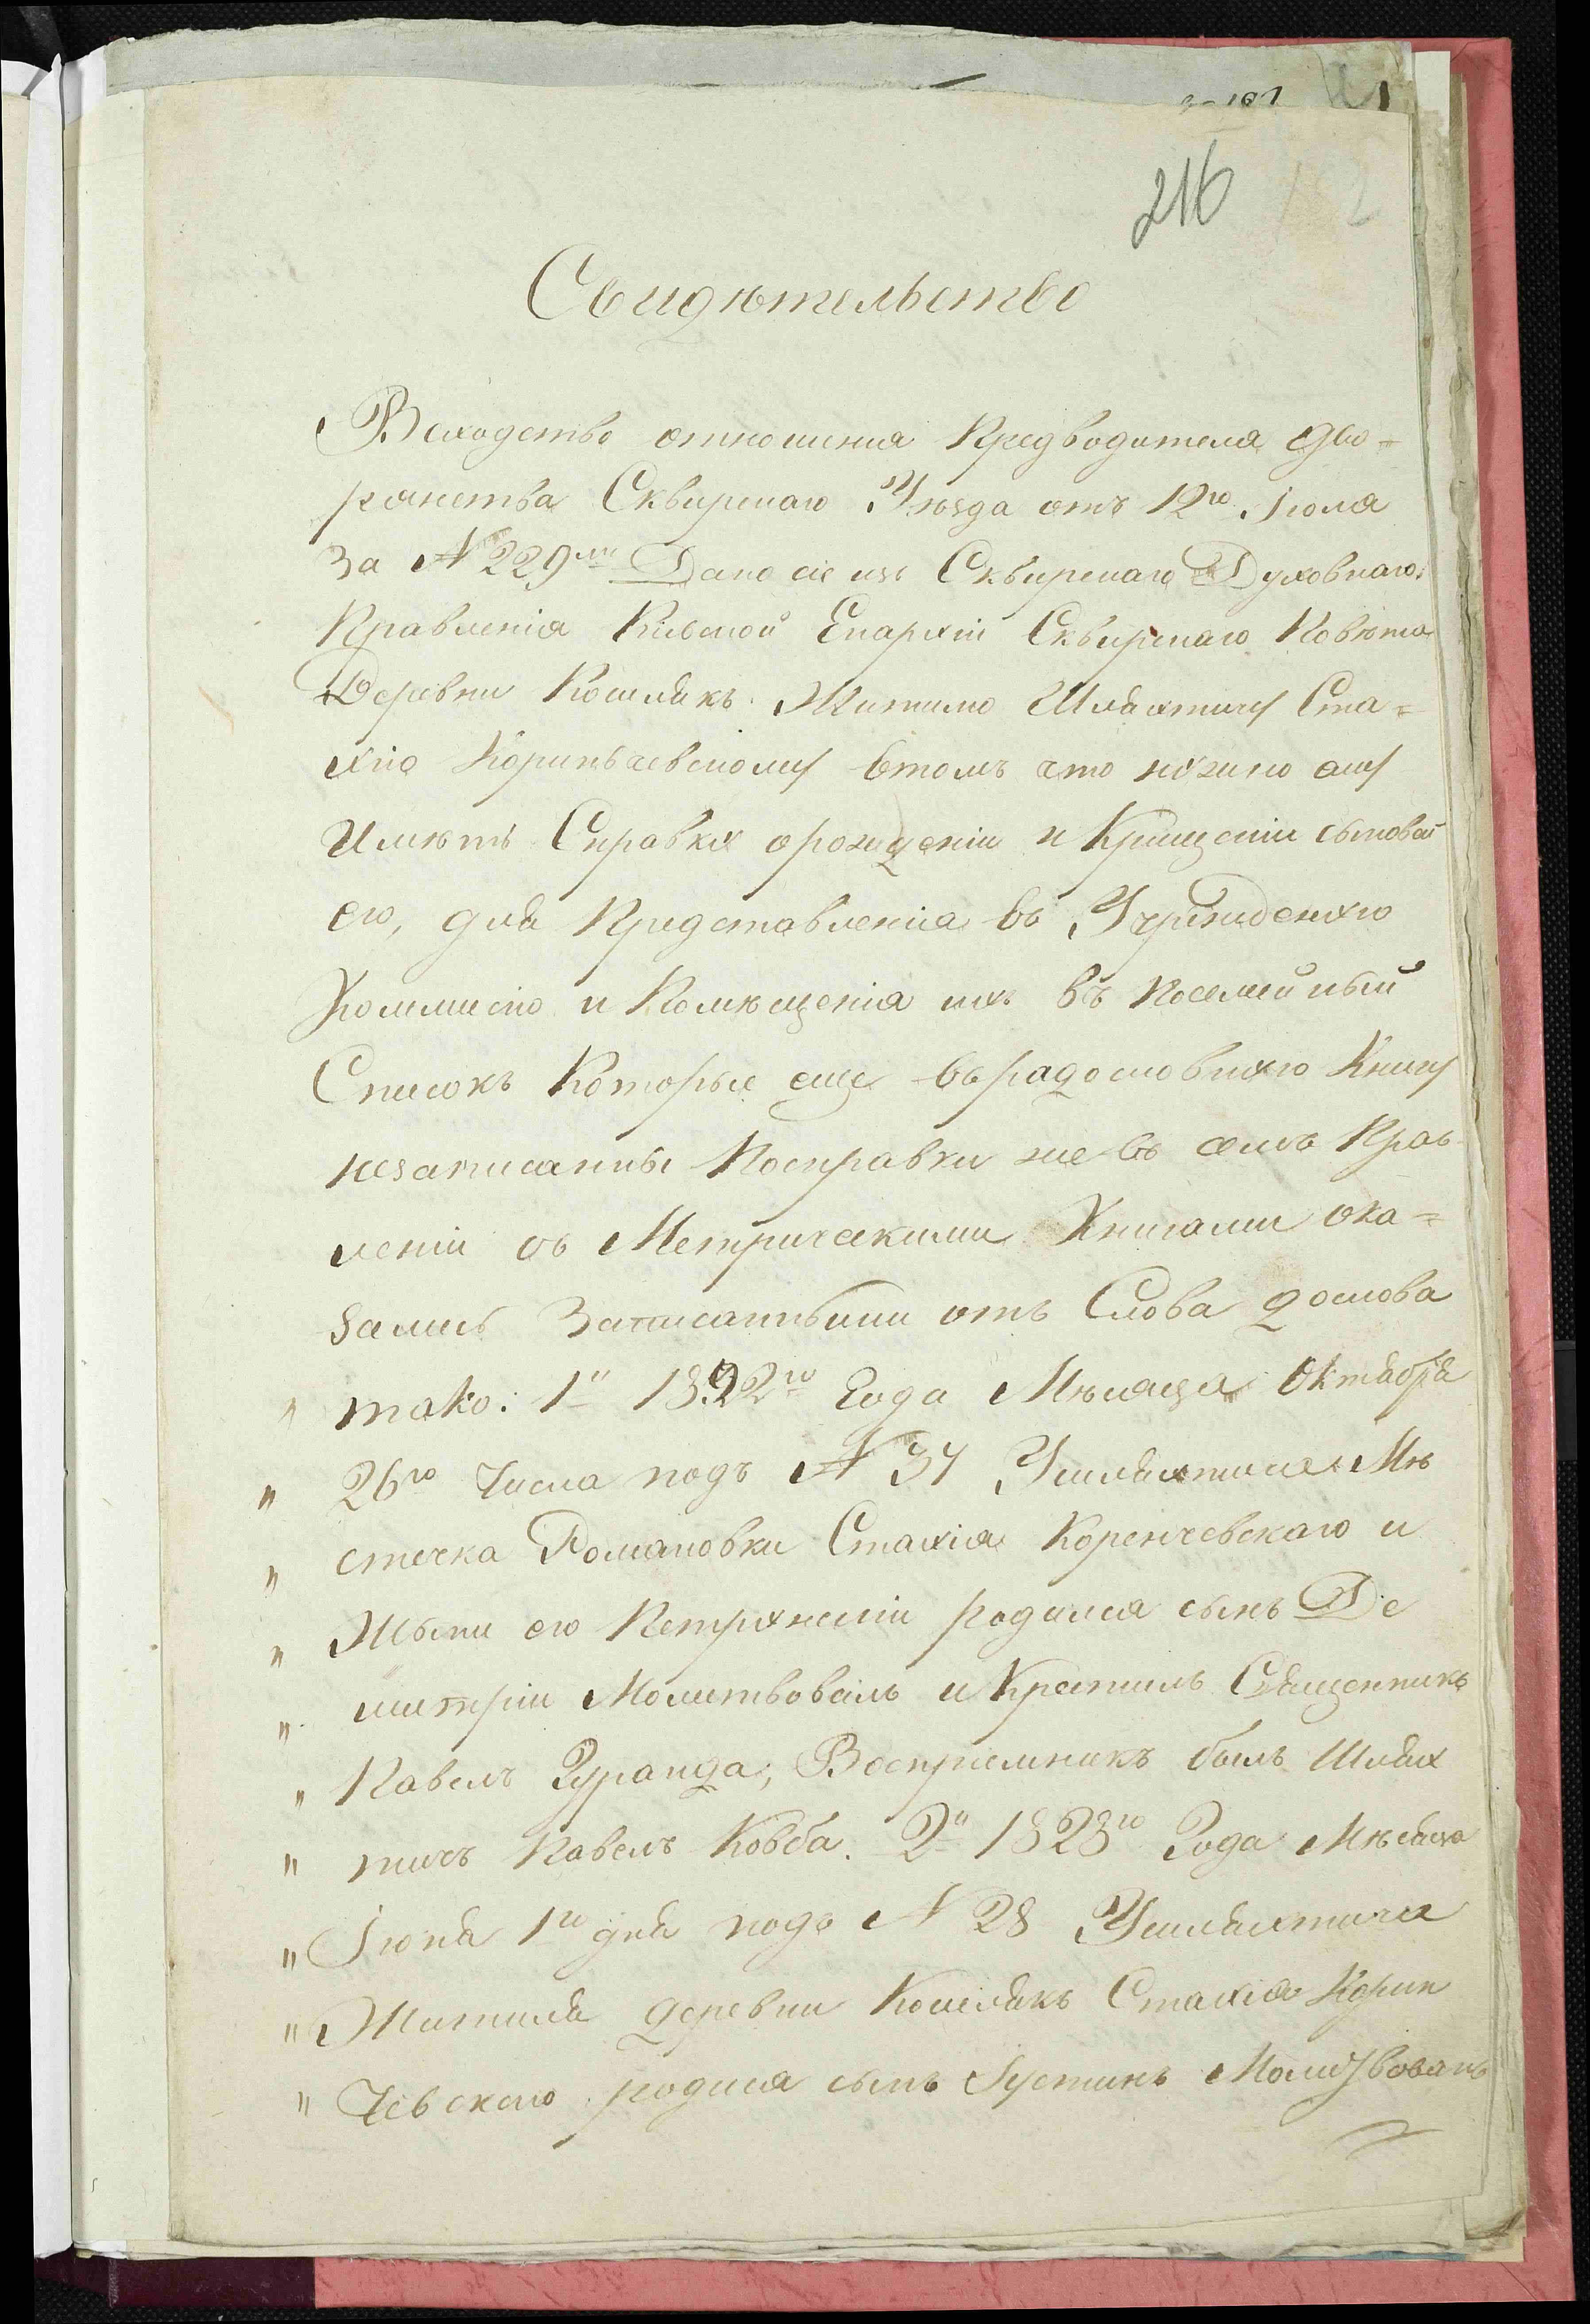 216
Свидѣтельство
Всходство отношения Предводителя дво=
рянства Сквирскаго Уѣзда отъ 12го Іюля
За № 229мъ Дано сіе изъ Сквирскаго Духовнаго
Правленія Кіевской Епархіи Сквирскаго Повѣта
Деревни Кошлякъ Жителю Шляхтичу Ста=
хію Коринчевскому втомъ что нужно ему
Имѣть Справки орождении и Крищении сыновей
его, для Представленія въ Учрежденную
Коммисію и Помѣщенія ихъ въ посемейный
Списокъ Которые еще въ радословную Книгу
незаписанны Посправки же въ семъ Прав
леніи съ Метрическими Книгами ока=
зались Записанными отъ Слова дослова
" тако: 1й 1822го Года Мѣсяца Октября
" 26го Числа подъ № 34 Ушляхтича Мѣ
" стечка Романовки Стахія Коренчевскаго и
" Жены его Петрунелии родился сынъ Ди
" митрій Молитвовалъ и Крестилъ Священникъ
" Павелъ Туранда; Восприемникъ былъ Шлях
" тичъ Павелъ Ковба. 2й 1828го Года Мѣсяца
" Іюня 1го дня подъ № 28 Ушляхтича
" Жителя деревни Кошлякъ Стахія Корин
" Чевскаго родися сынъ Іустинъ Молитвовалъ